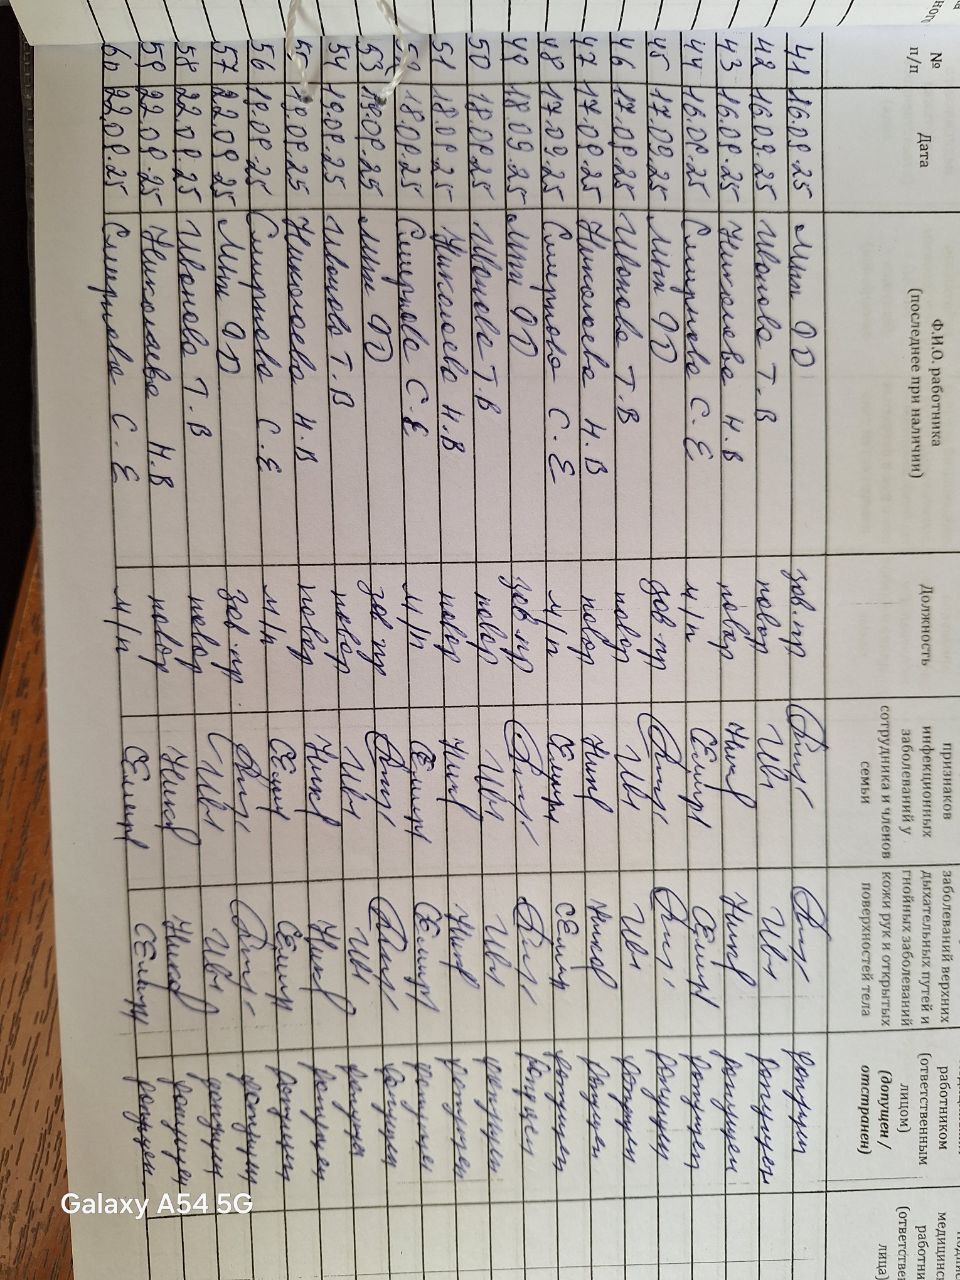 № п/п
Дата
Ф.И.О. работника
(последнее при наличии)
Должность
признаков
инфекционных
заболеваний у
сотрудника и членов
семьи
заболеваний верхних
дыхательных путей и
гнойных заболеваний
кожи рук и открытых
поверхностей тела
работником
(ответственным
лицом)
(допущен /
отстранен)
медицинс
работни
(ответстве
лица)
41 16.09.25 зав. пр допущен
42 16.09.25 Иванова Т. В повар Ив1 Ив1 допущен
43 16.09.25 Николаева Н. В повар Ник Ник допущен
44 16.09.25 Смирнова С. Е м/п СЕмир СЕмир допущен
45 17.09.25 зав пр допущен
46 17.09.25 Иванова Т. В повар Ив1 Ив1 допущен
47 17.09.25 Николаева Н. В повар Ник Ников допущен
48 17.09.25 Смирнова С. Е м/п СЕмир СЕмир допущен
49 18.09.25 зав пр допущен
50 18.09.25 Иванова Т. В повар Ив1 Ив1 допущен
51 18.09.25 Николаева Н. В повар Ник Ник допущен
52 18.09.25 Смирнова С. Е м/п СЕмир СЕмир допущен
53 19.09.25 зав пр допущен
54 19.09.25 Иванова Т. В повар Ив1 Ив1 допущен
55 19.09.25 Николаева Н. В повар Ник Ник допущен
56 19.09.25 Смирнова С. Е м/п СЕмир СЕмир допущен
57 22.09.25 зав. пр. допущен
58 22.09.25 Иванова Т. В повар Ив1 Ив1 допущен
59 22.09.25 Николаева Н. В повар Ников Ников допущен
60 22.09.25 Смирнова С. Е м/п СЕмир СЕмир допущен
Galaxy A54 5G